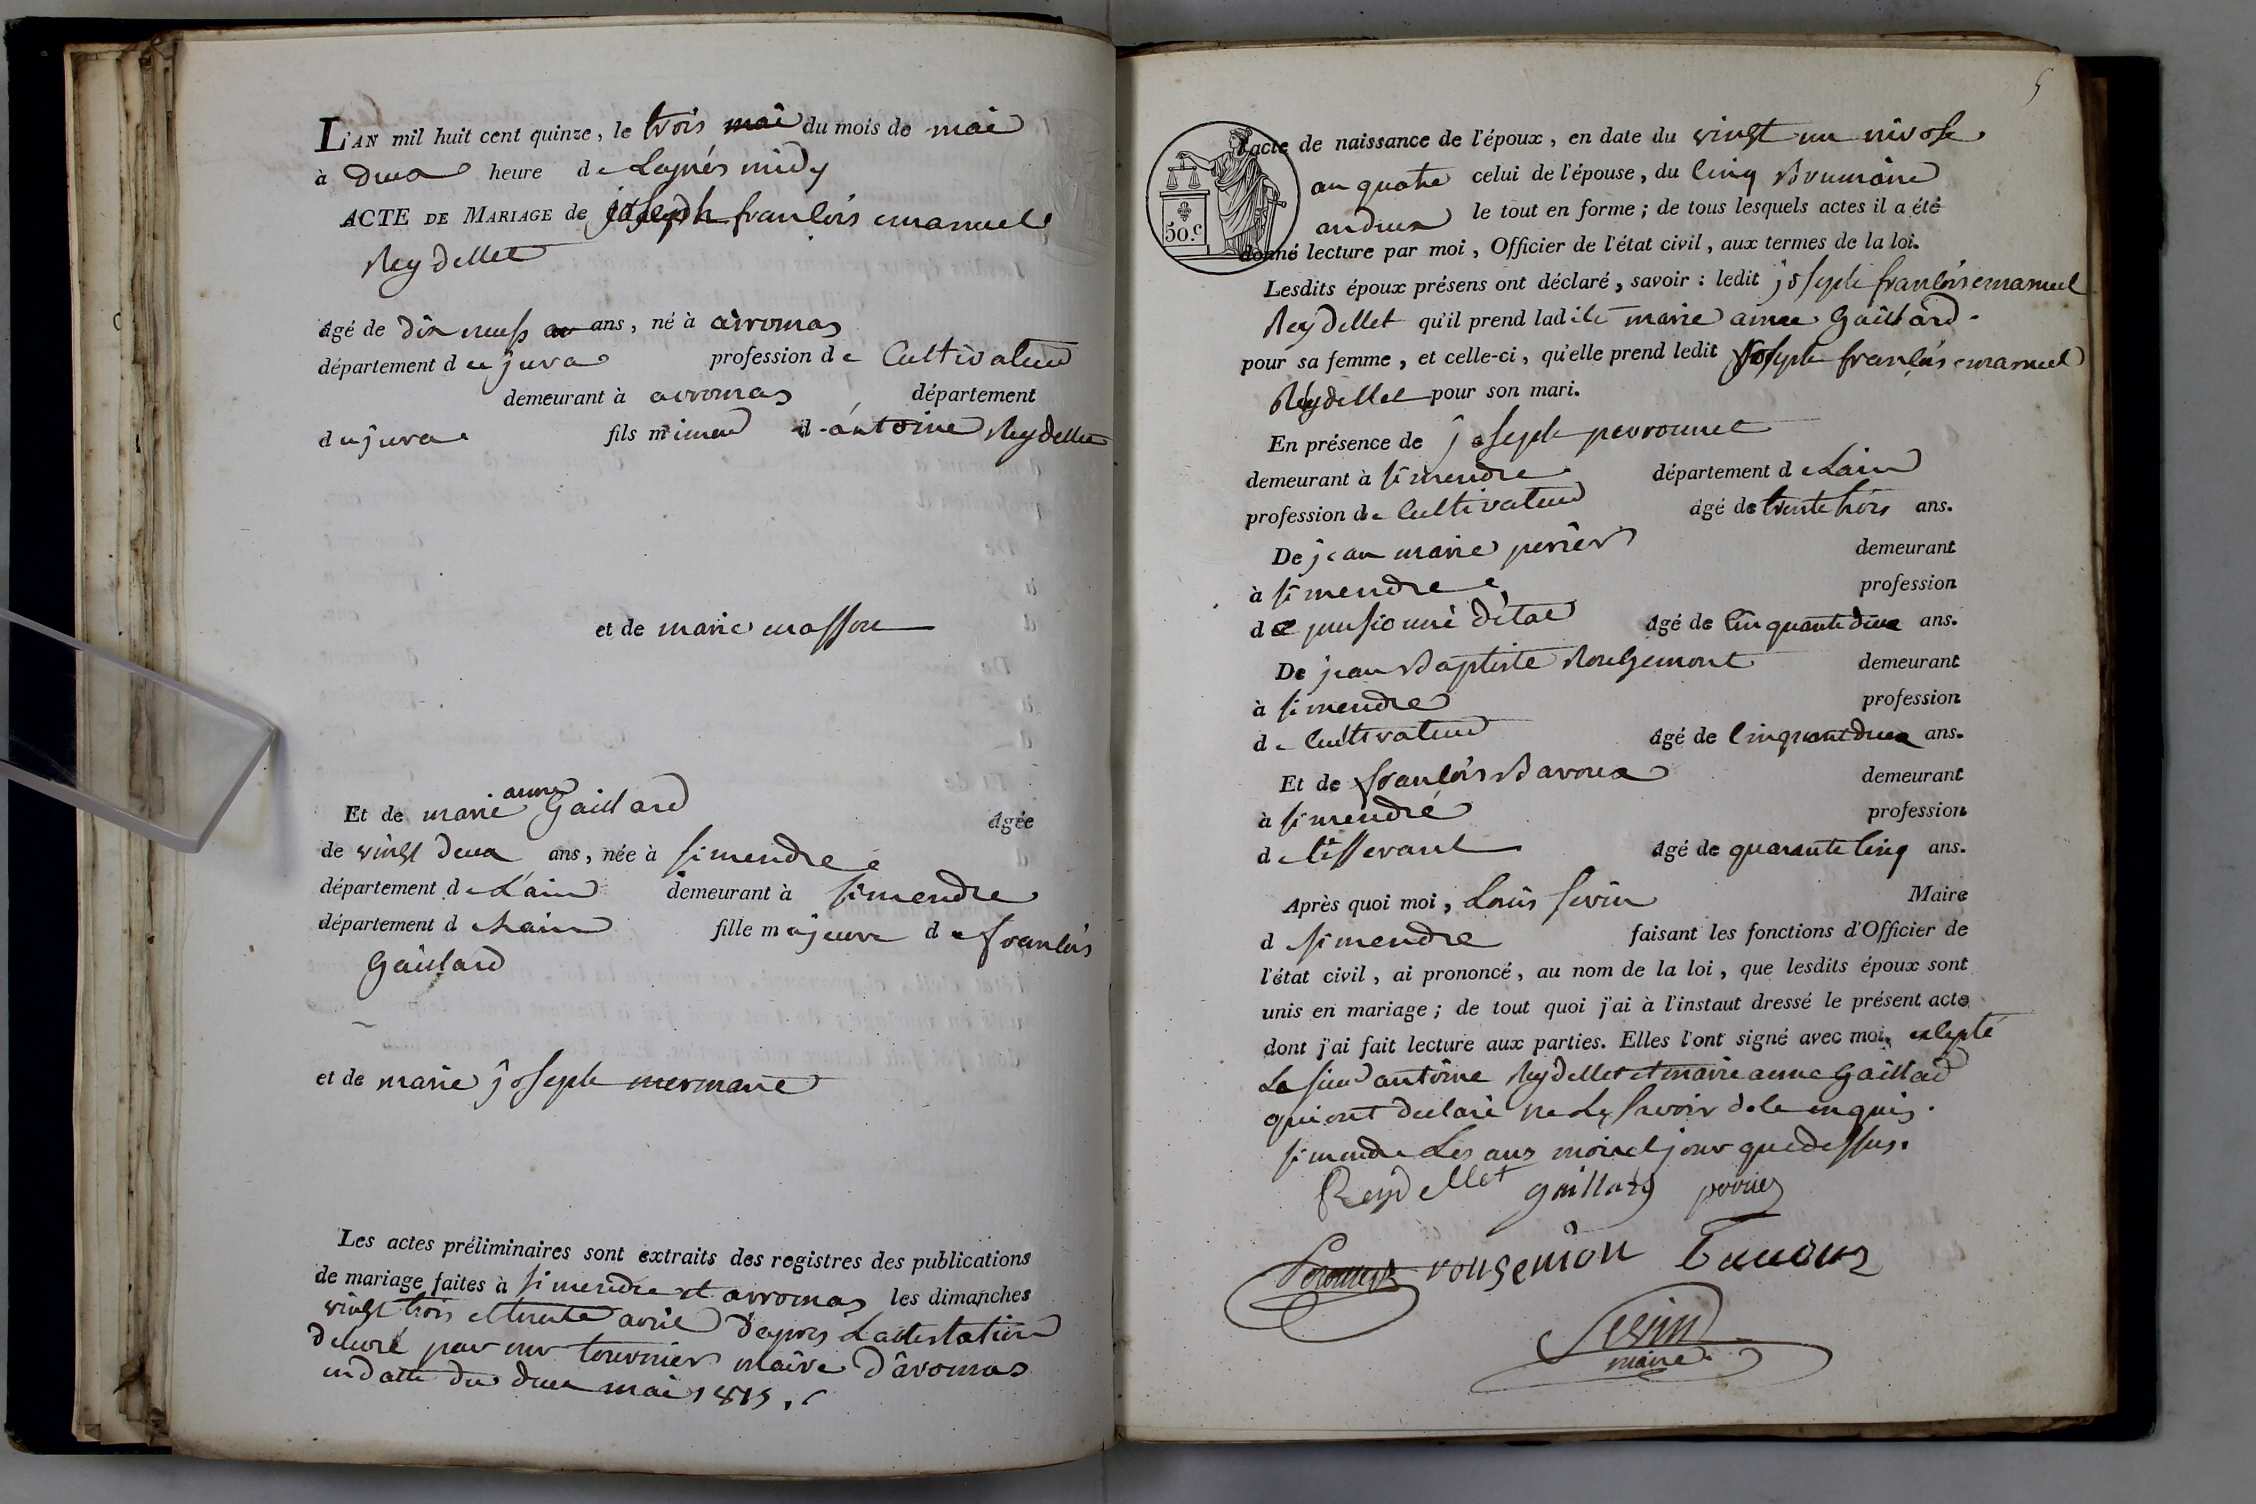 L'AN mil huit cent quinze, le trois mai du mois de mai
à deux heure de Laprés midy
ACTE DE MARIAGE de joseph francois emanuel
Reydellet
âgé de dix neuf ans, né à arromas
département du jura profession de Cultivateur
demeurant à arromas département
du jura fils mineur d antoine Reydellet
et de marie masson
anne
Et de marie Gaillard âgée
de vingt deux ans, née à simendre
département de L'ain demeurant à simendre
département de Lain fille majeure de francois
Gaillard
et de marie joseph mermane
Les actes préliminaires sont extraits des registres des publications
de mariage faites à simendre et arromas les dimanches
vingt trois et trente avril d'apres Lattestation
delivré par mr tournier maire d'aromas
en datte du deux mai 1815.
5
l'acte de naissance de l'époux, en date du vingt un nivose
an quatre celui de l'épouse, du Cinq Brumaire
an deux le tout en forme; de tous lesquels actes il a été
50.c
donné lecture par moi, Officier de l'état civil, aux termes de la loi.
Lesdits époux présens ont déclaré, savoir: ledit joseph francois emanuel
Reydellet qu'il prend ladite marie anne Gaillard
pour sa femme, et celle-ci, qu'elle prend ledit joseph francois emanuel
Réydellet pour son mari.
En présence de joseph perronnet
demeurant à simendre département de Lain
profession de Cultivateur âgé de trente trois ans.
De jean marie perier demeurant
à simendre profession
de pensionné détat âgé de Cinquante deux ans.
De jean Baptiste Rougemont demeurant
à simendre profession
de Cultivateur âgé de Cinquant deux ans.
Et de francois Bavoux demeurant
à simendré profession
de tisserant âgé de quarante Cinq ans.
Après quoi moi, Louis sevin Maire
d simendre faisant les fonctions d'Officier de
l'état civil, ai prononcé, au nom de la loi, que lesdits époux sont
unis en mariage; de tout quoi j'ai à l'instaut dressé le présent acte
dont j'ai fait lecture aux parties. Elles l'ont signé avec moi, excepté
Le sieur antoine Reydellet et marie anne Gaillard
qui ont declaré ne Le savoir de ce enquis.
simendre Les ans mois et jour que dessus.
Reydellet gaillard perrier
Peronnet rougemon Bavoux
Sevin
maire